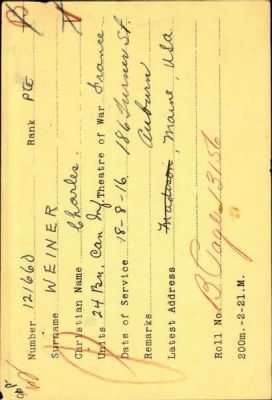 Number 121660 Rank Pte
Surname WEINER
Christian Name Charles.
Units 24 Bn. Can Inf. Theatre of War France
Date of Service 18-8-16.
Remarks 186 Turner St.
Auburn
Latest Address Madison, Maine, USA
Roll No. B Page 13156
200m.-2-21.M.